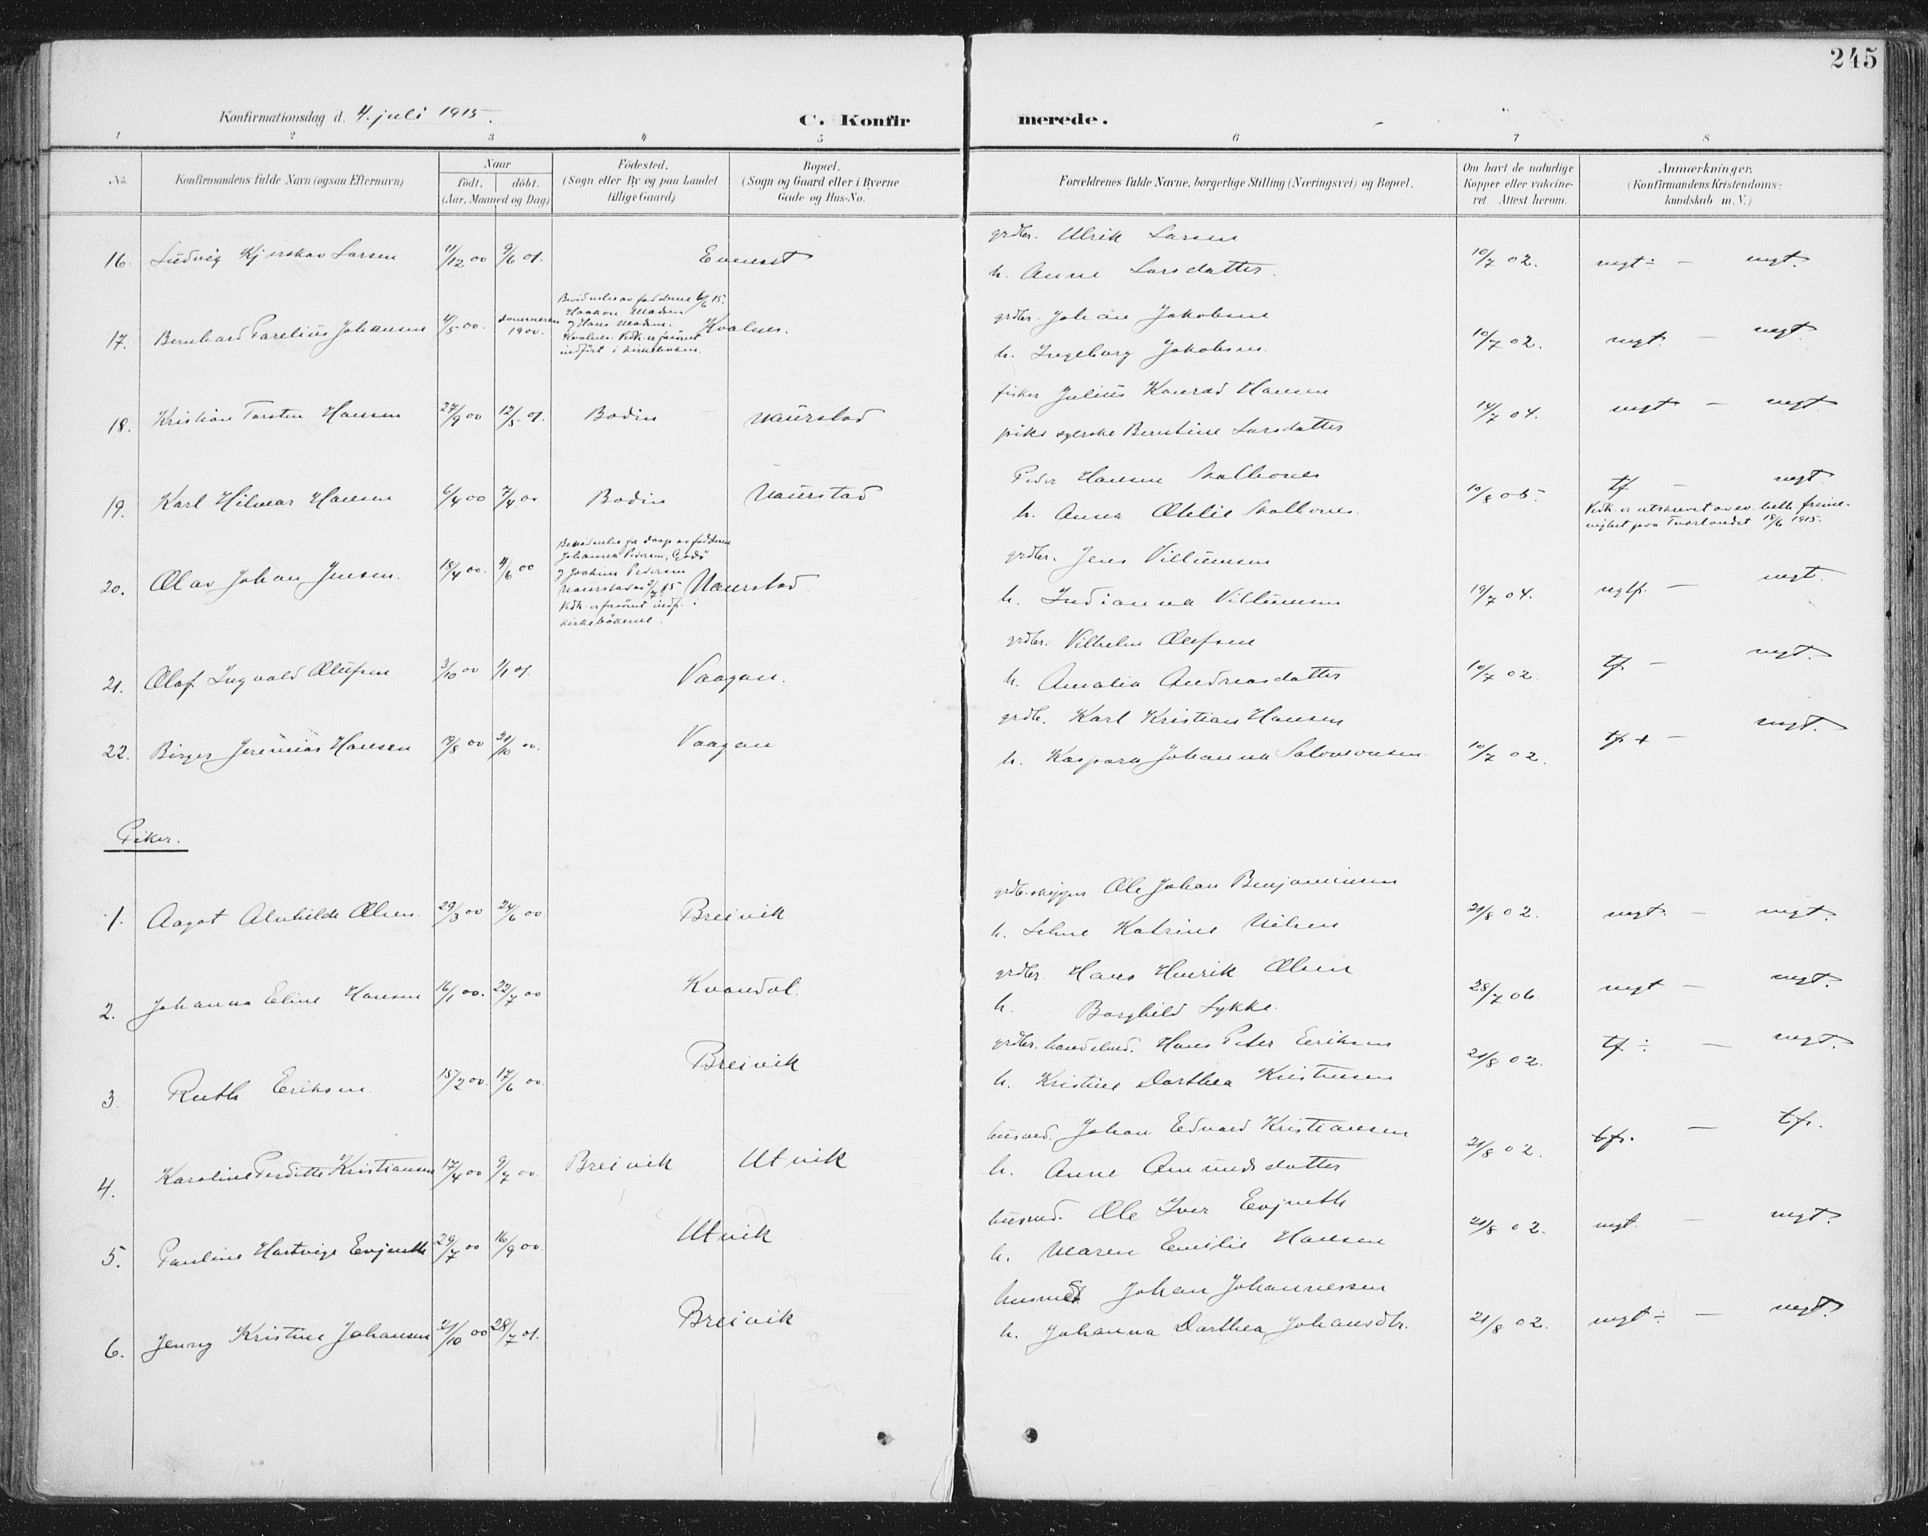 245
Konfirmationsdag d. 4. juli 1915.
C. Konfirmerede.
1 2 3 4 5 6 7 8
No.
Konfirmandens fulde Navn (ogsaa Efternavn)
Naar
født, døbt.
(Aar, Maaned og Dag)
Fødested.
(Sogn eller By og paa Landet
tillige Gaard)
Bopæl.
(Sogn og Gaard eller i Byerne
Gade og Hus-No.
Forældrenes fulde Navne, borgerlige Stilling (Næringsvei) og Bopæl.
Om havt de naturlige
Kopper eller vakcine-
ret Attest herom.
Anmærkninger.
(Konfirmandens Kristendoms-
kundskab m. V.)
16. Ludvig Kjerskov Larsen 11/12 00 9/6 01. Evenset grdbr. Ulrik Larsen
h. Anne Larsdatter. 10/7 02. mgt ÷ — mgt.
17. Bernhard Parelius Johansen 4/5 00. sommeren
1900. Bevidnelse av fadderne 6/6 15.
Haakon Madsen
og Hans Madsen.
Kvalnes. Vdk. er forsømt
indført i kirkeboken. Kvalnes. grdbr. Johan Jakobsen
h. Ingeborg Jakobsen. 10/7 02. mgt. — mgt.
18. Kristian Torsten Hansen 27/9 00 12/5 01. Bodin Naurstad fisker Julius Konrad Hansen
pike syerske Berntine Larsdatter 14/7 04. mgt — mgt.
19. Karl Hilmar Hansen 6/4 00 7/4 00 Bodin Naurstad Peder Hansen
h. Anna Otelie 10/8 05. tf — mgt
Vdk. er utskrevet av ev. luth. frime-
nighet paa Tverlandet 18/6 1915.
20. Olav Johan Jensen. 18/4 00. 4/6 00 Bevidnelse fr. daap av fadderne
Johannes Pedersen, Godø
og Joakim Pedersen
Naurstad 2/7 15
Vdk. er forsømt indf. i
kirkebökerne. Naurstad. grdbr. Jens Villumsen
h. Indianna Villumsen 19/7 04. mgtf. — mgt.
21. Olaf Ingvald Olufsen 3/10 00 1/1 01. Vaagan. grdbr. Vilhelm Olufsen
h. Amalia Andreasdatter 10/7 02. tf. — mgt.
22. Birger Jeremias Hansen 19/8 00 21/10 00. Vaagan grdb. Karl Kristian Hansen
h. Kaspara Johanna Salomonsen 10/7 02. tf + — mgt.
Piker.
1. Aagot Alvhilde Olsen. 29/3 00 24/6 00. Breivik grdb. skipper Ole Johan Benjaminsen
h. Katrine Nilsen 21/8 02. mgt. — mgt.
2. Johanna Eline Hansen 16/1 00. 22/7 00 Kvandal. grdbr. Hans Henrik Olsen
h. Borghild Lykke. 28/7 06. mgt — mgt.
3. Ruth Eriksen. 15/2 00. 17/6 00. Breivik grdbr. handelsmd. Hans Peter Eriksen
h. Kristine Dorthea Kristensen 21/8 02. tf ÷ — mgt.
4. Karoline Perditte Kristiansen 17/4 00 9/7 00. Breivik Utvik husmd. Johan Edvard Kristiansen
h. Anne Amundsdatter 21/8 02. tf. — tf.
5. Pauline Hartvige Evjenth 29/7 00 16/9 00. Utvik husmd. Ole Iver Evjenth
h. Maren Emilie Hansen 21/8 02. mgt. — mgt.
6. Jenny Kristine Johansen 21/10 00 28/7 01. Breivik husmd Johan Johannessen
h. Johanna Dorthea Johansdtr. 21/8 02. mgt ÷ — mgt.